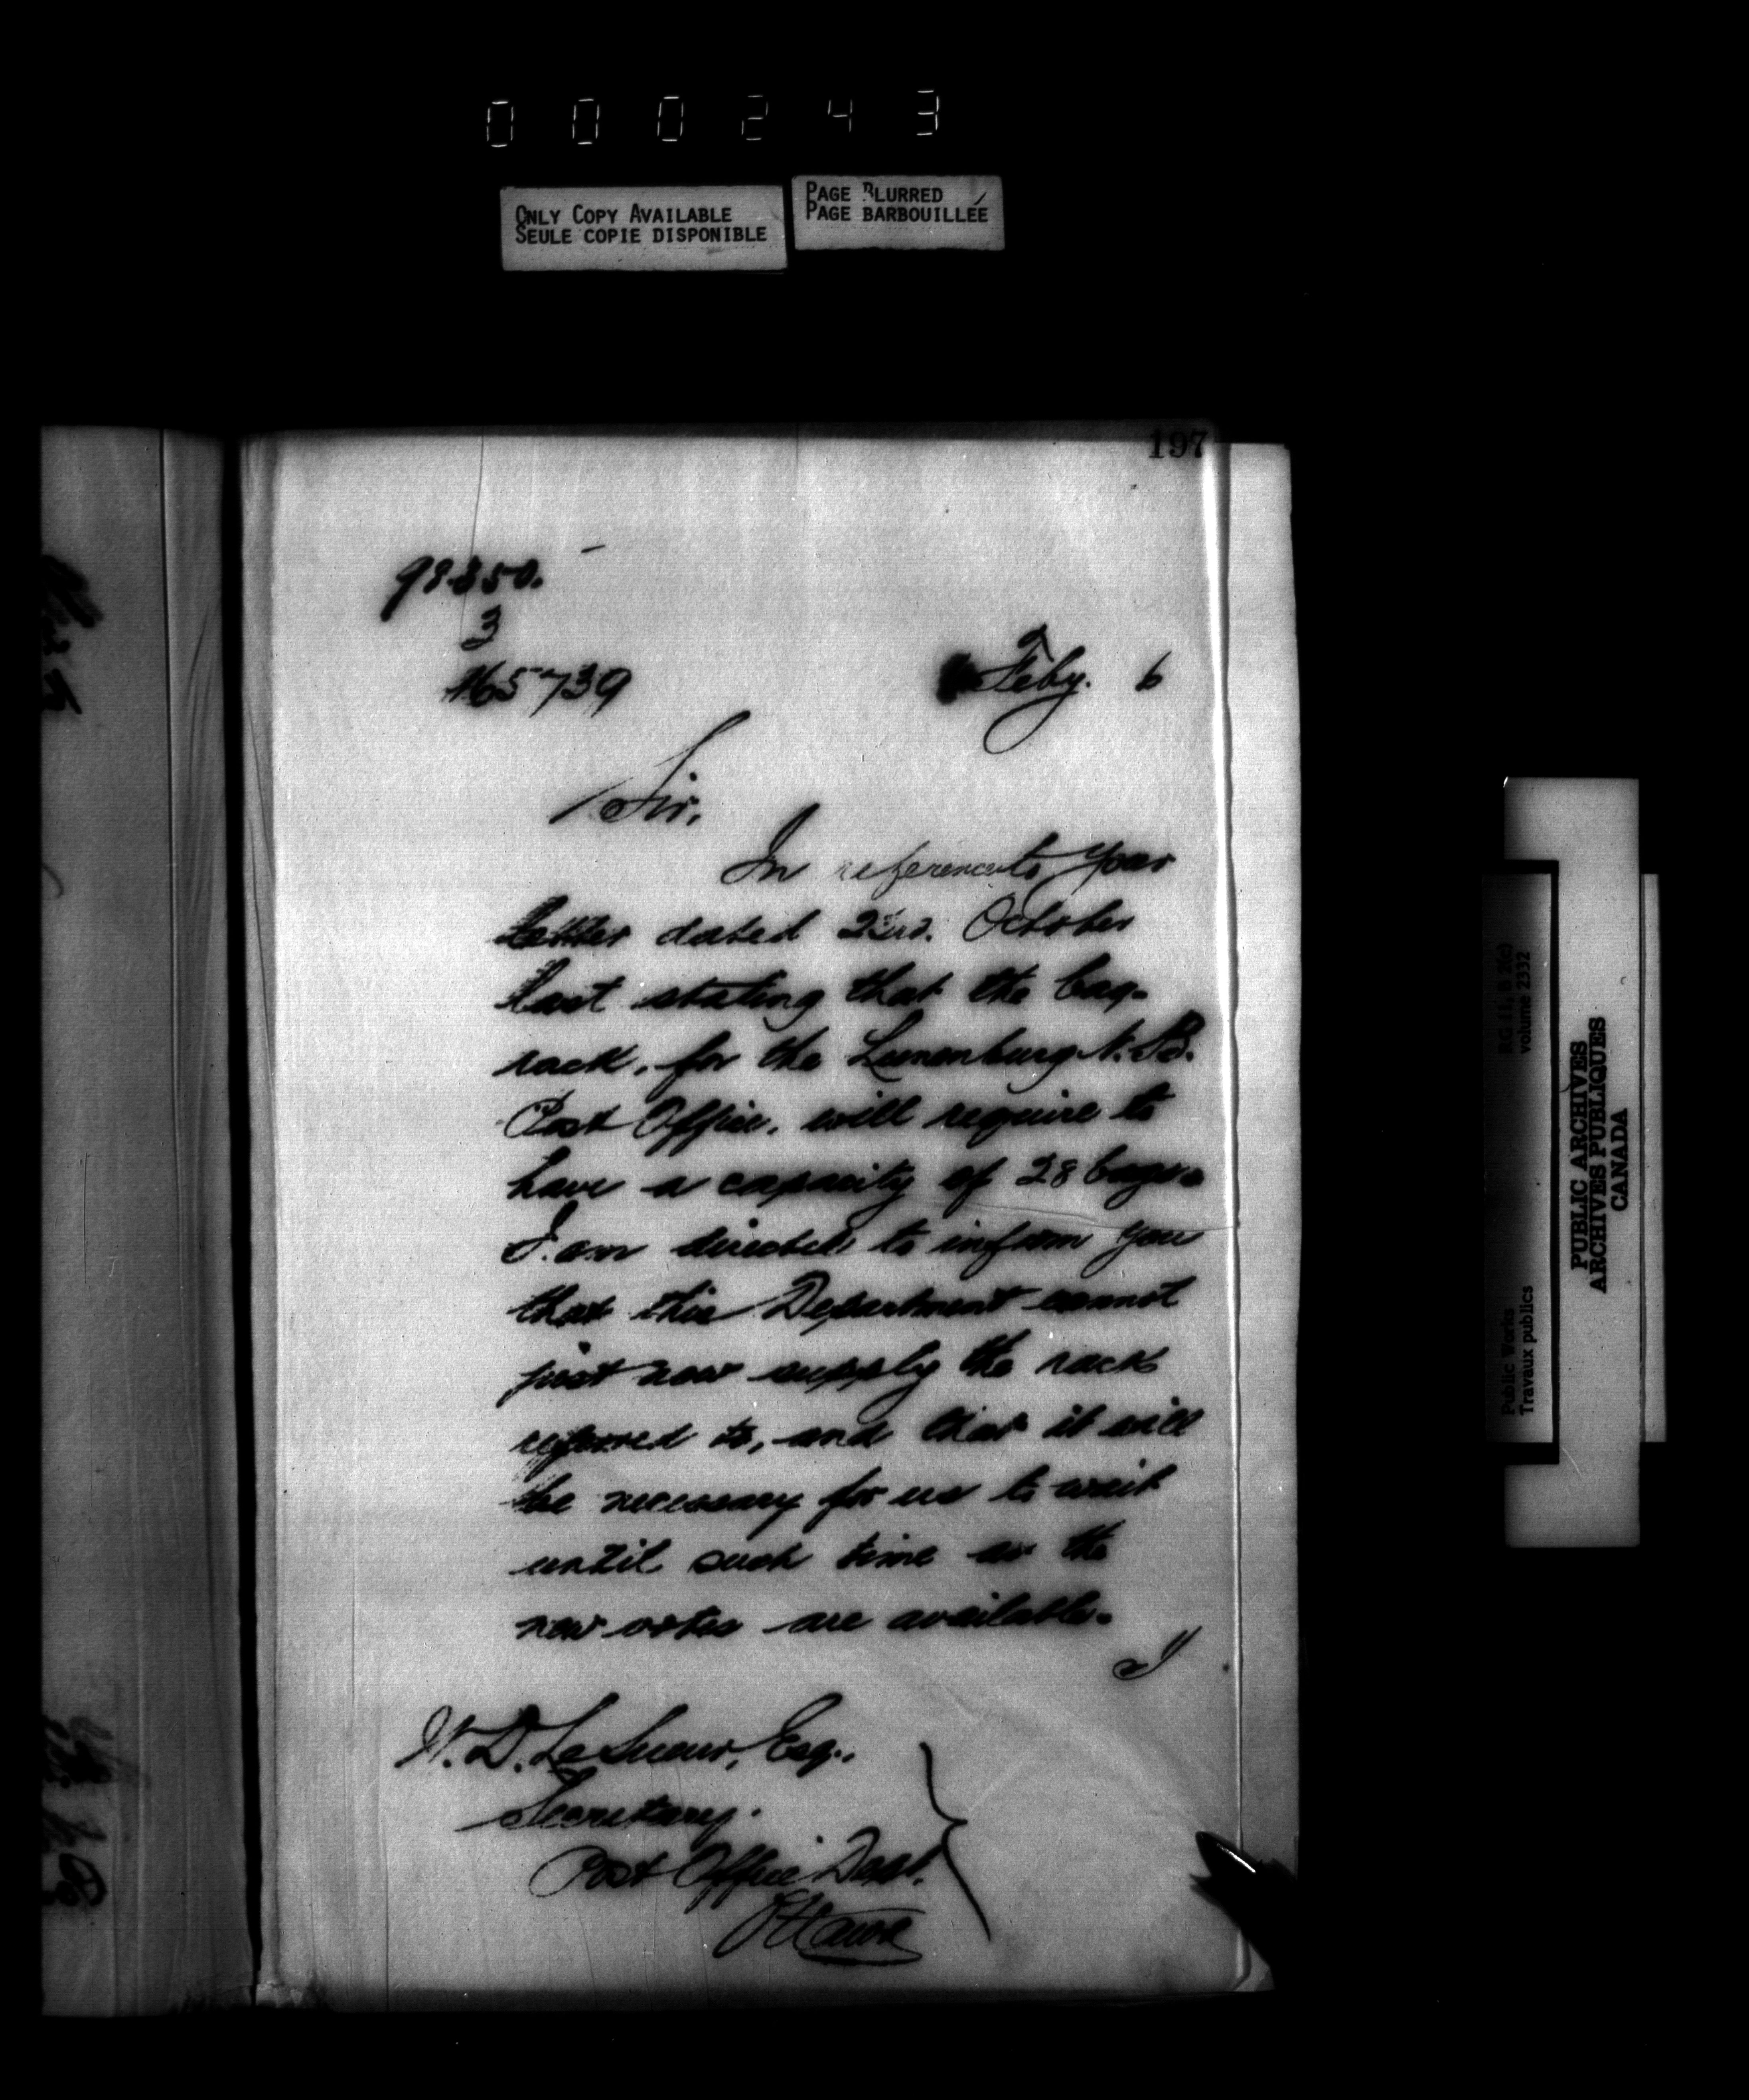 000243
ONLY COPY AVAILABLE
SEULE COPIE DISPONIBLE
PAGE BLURRED
PAGE BARBOUILLÉE
197
98350.
165739
Feby. 6
Sir,
In reference to your
letter dated October
last stating that the bag-
rack, for the Lunenburg N.B.
Post Office, will require to
have a capacity of 28 bags.
I am directed to inform you
that this Department cannot
just now supply the rack
referred to, and that it will
be necessary for us to wait
until such time as the
new votes are available.
I
W. D. LeSueur, Esq.,
Secretary.
Post Office Dept.
Ottawa
RG 11, B 2(c)
volume 2332
Public Works
Travaux publics
PUBLIC ARCHIVES
ARCHIVES PUBLIQUES
CANADA